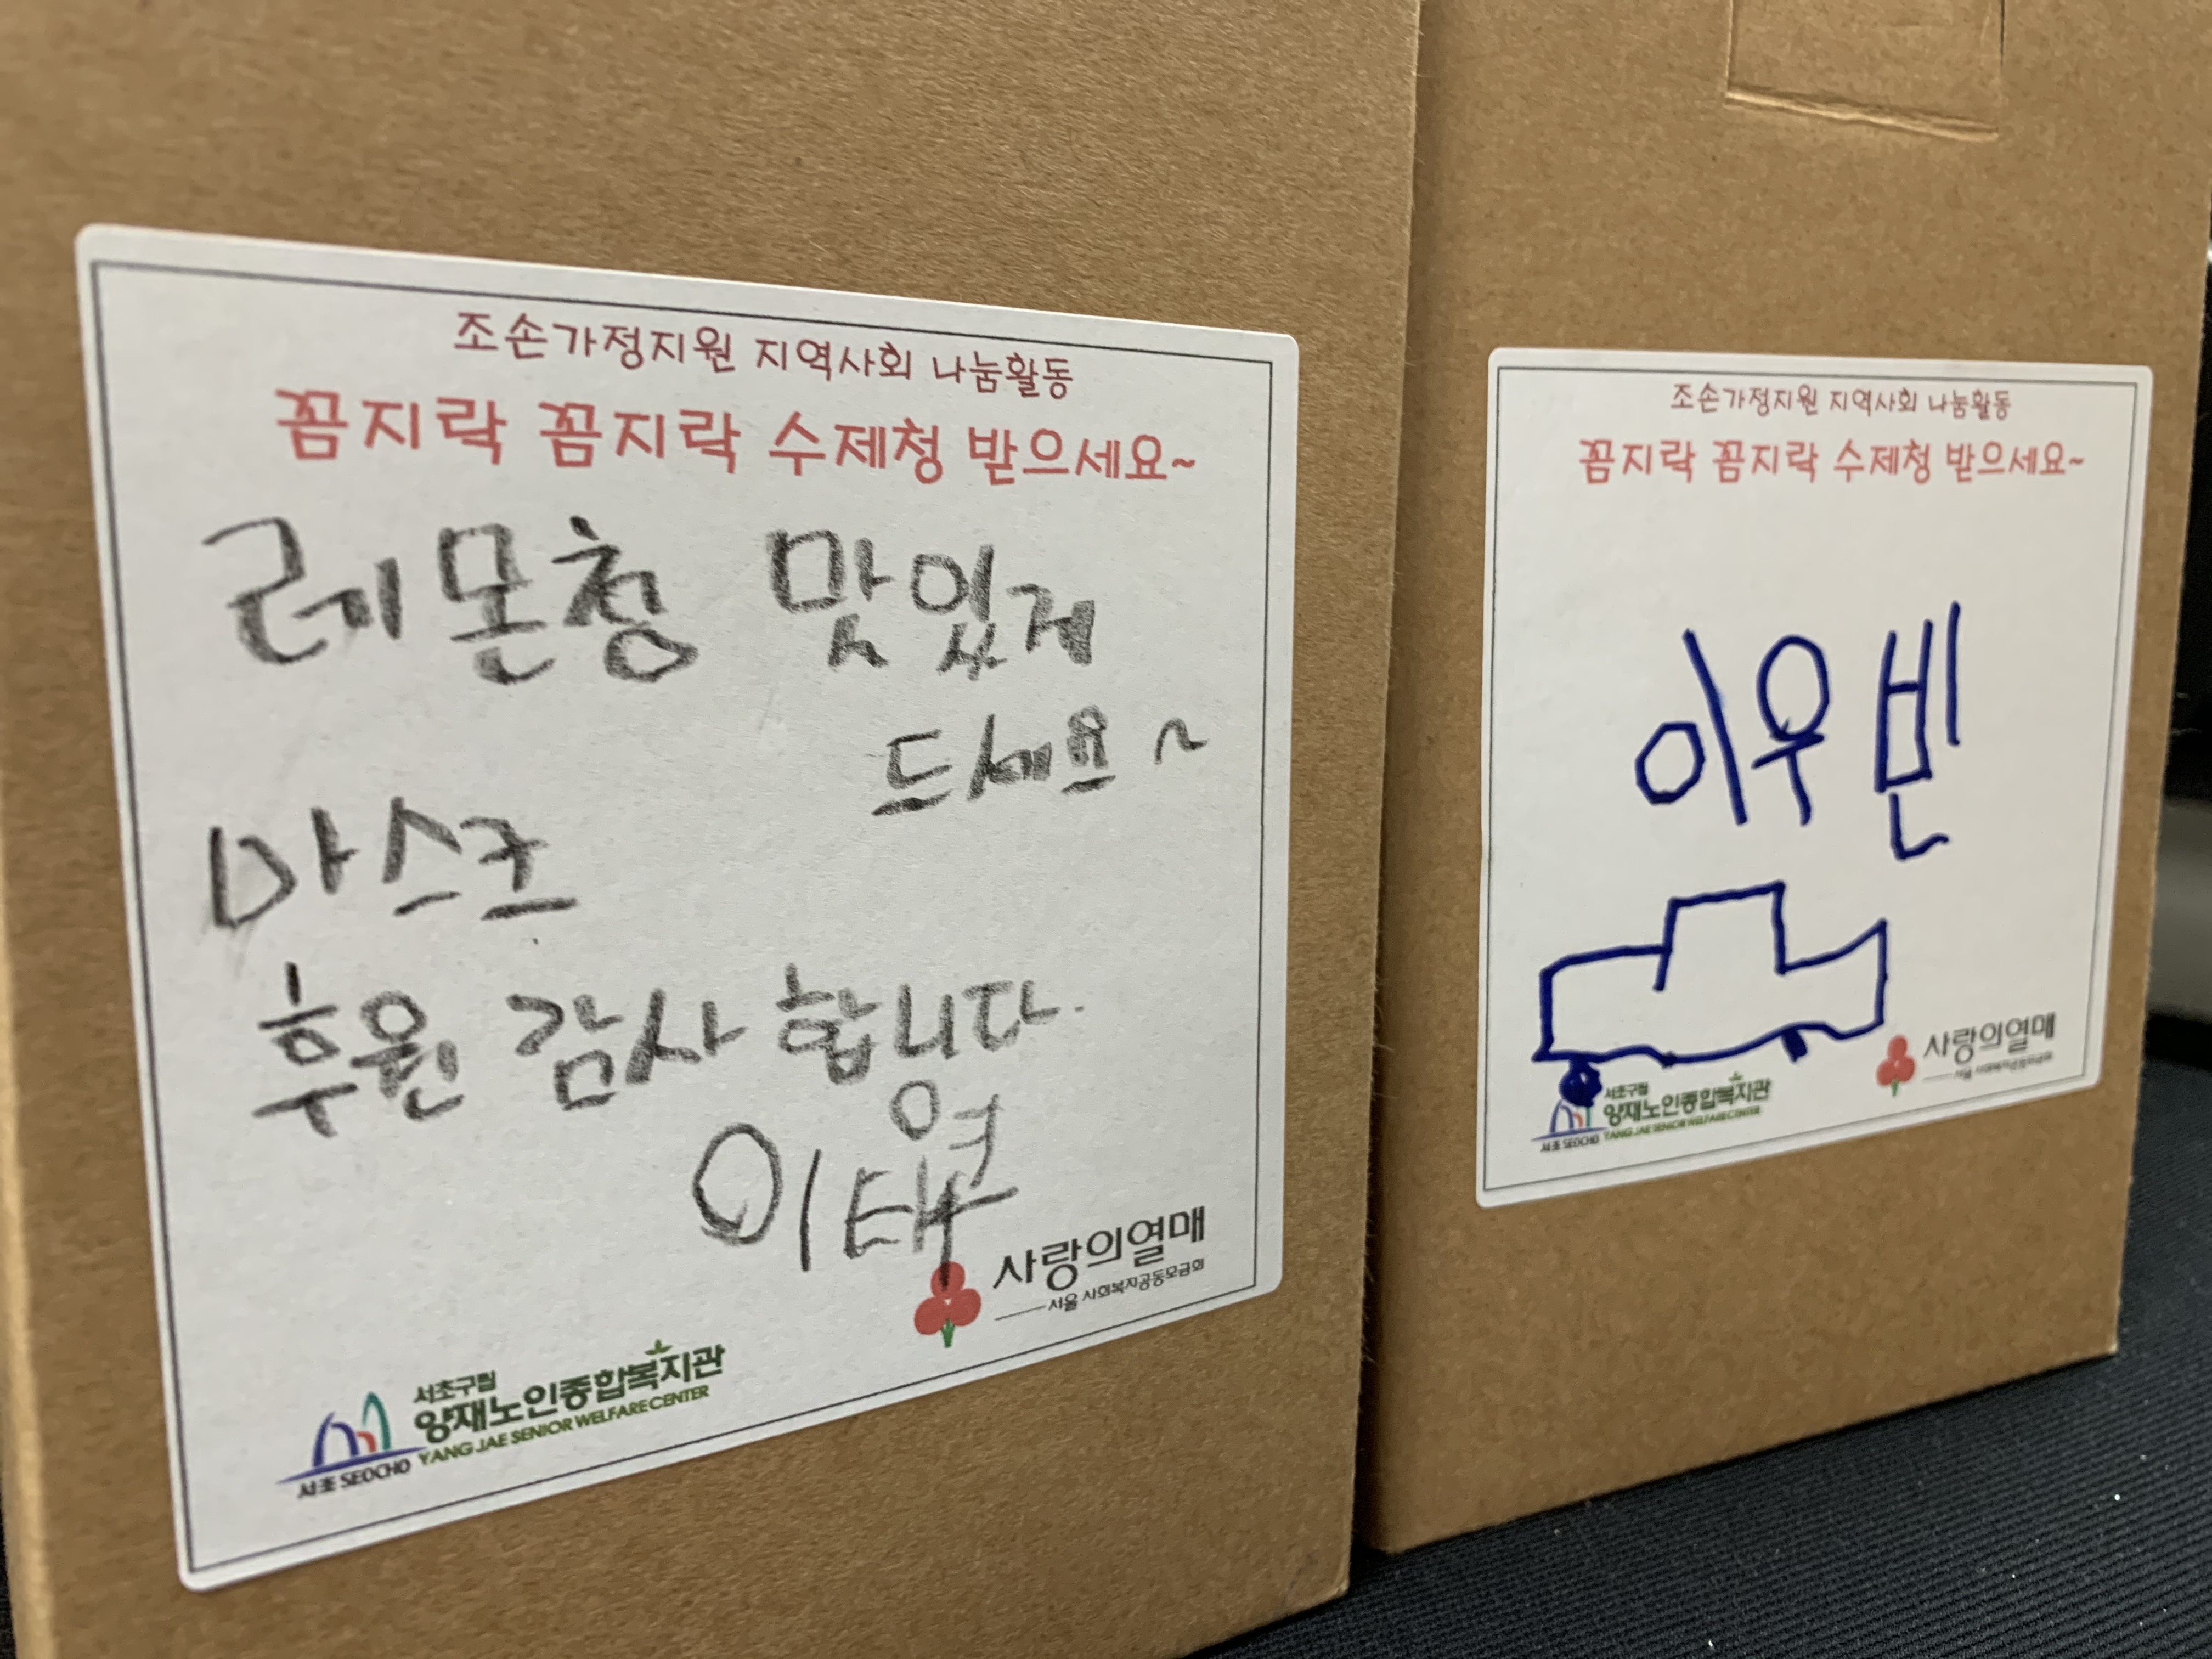 조손가정지원 지역사회 나눔활동
꼼지락 꼼지락 수제청 받으세요~
레몬청 맛있게
드세요~
마스크
후원 감사합니다.
이태영
사랑의열매
서울 사회복지공동모금회
서초구립
양재노인종합복지관
YANG JAE SENIOR WELFARE CENTER
서초 SEOCHO
조손가정지원 지역사회 나눔활동
꼼지락 꼼지락 수제청 받으세요~
이우빈
사랑의열매
서울 사회복지공동모금회
서초구립
양재노인종합복지관
YANG JAE SENIOR WELFARE CENTER
서초 SEOCHO